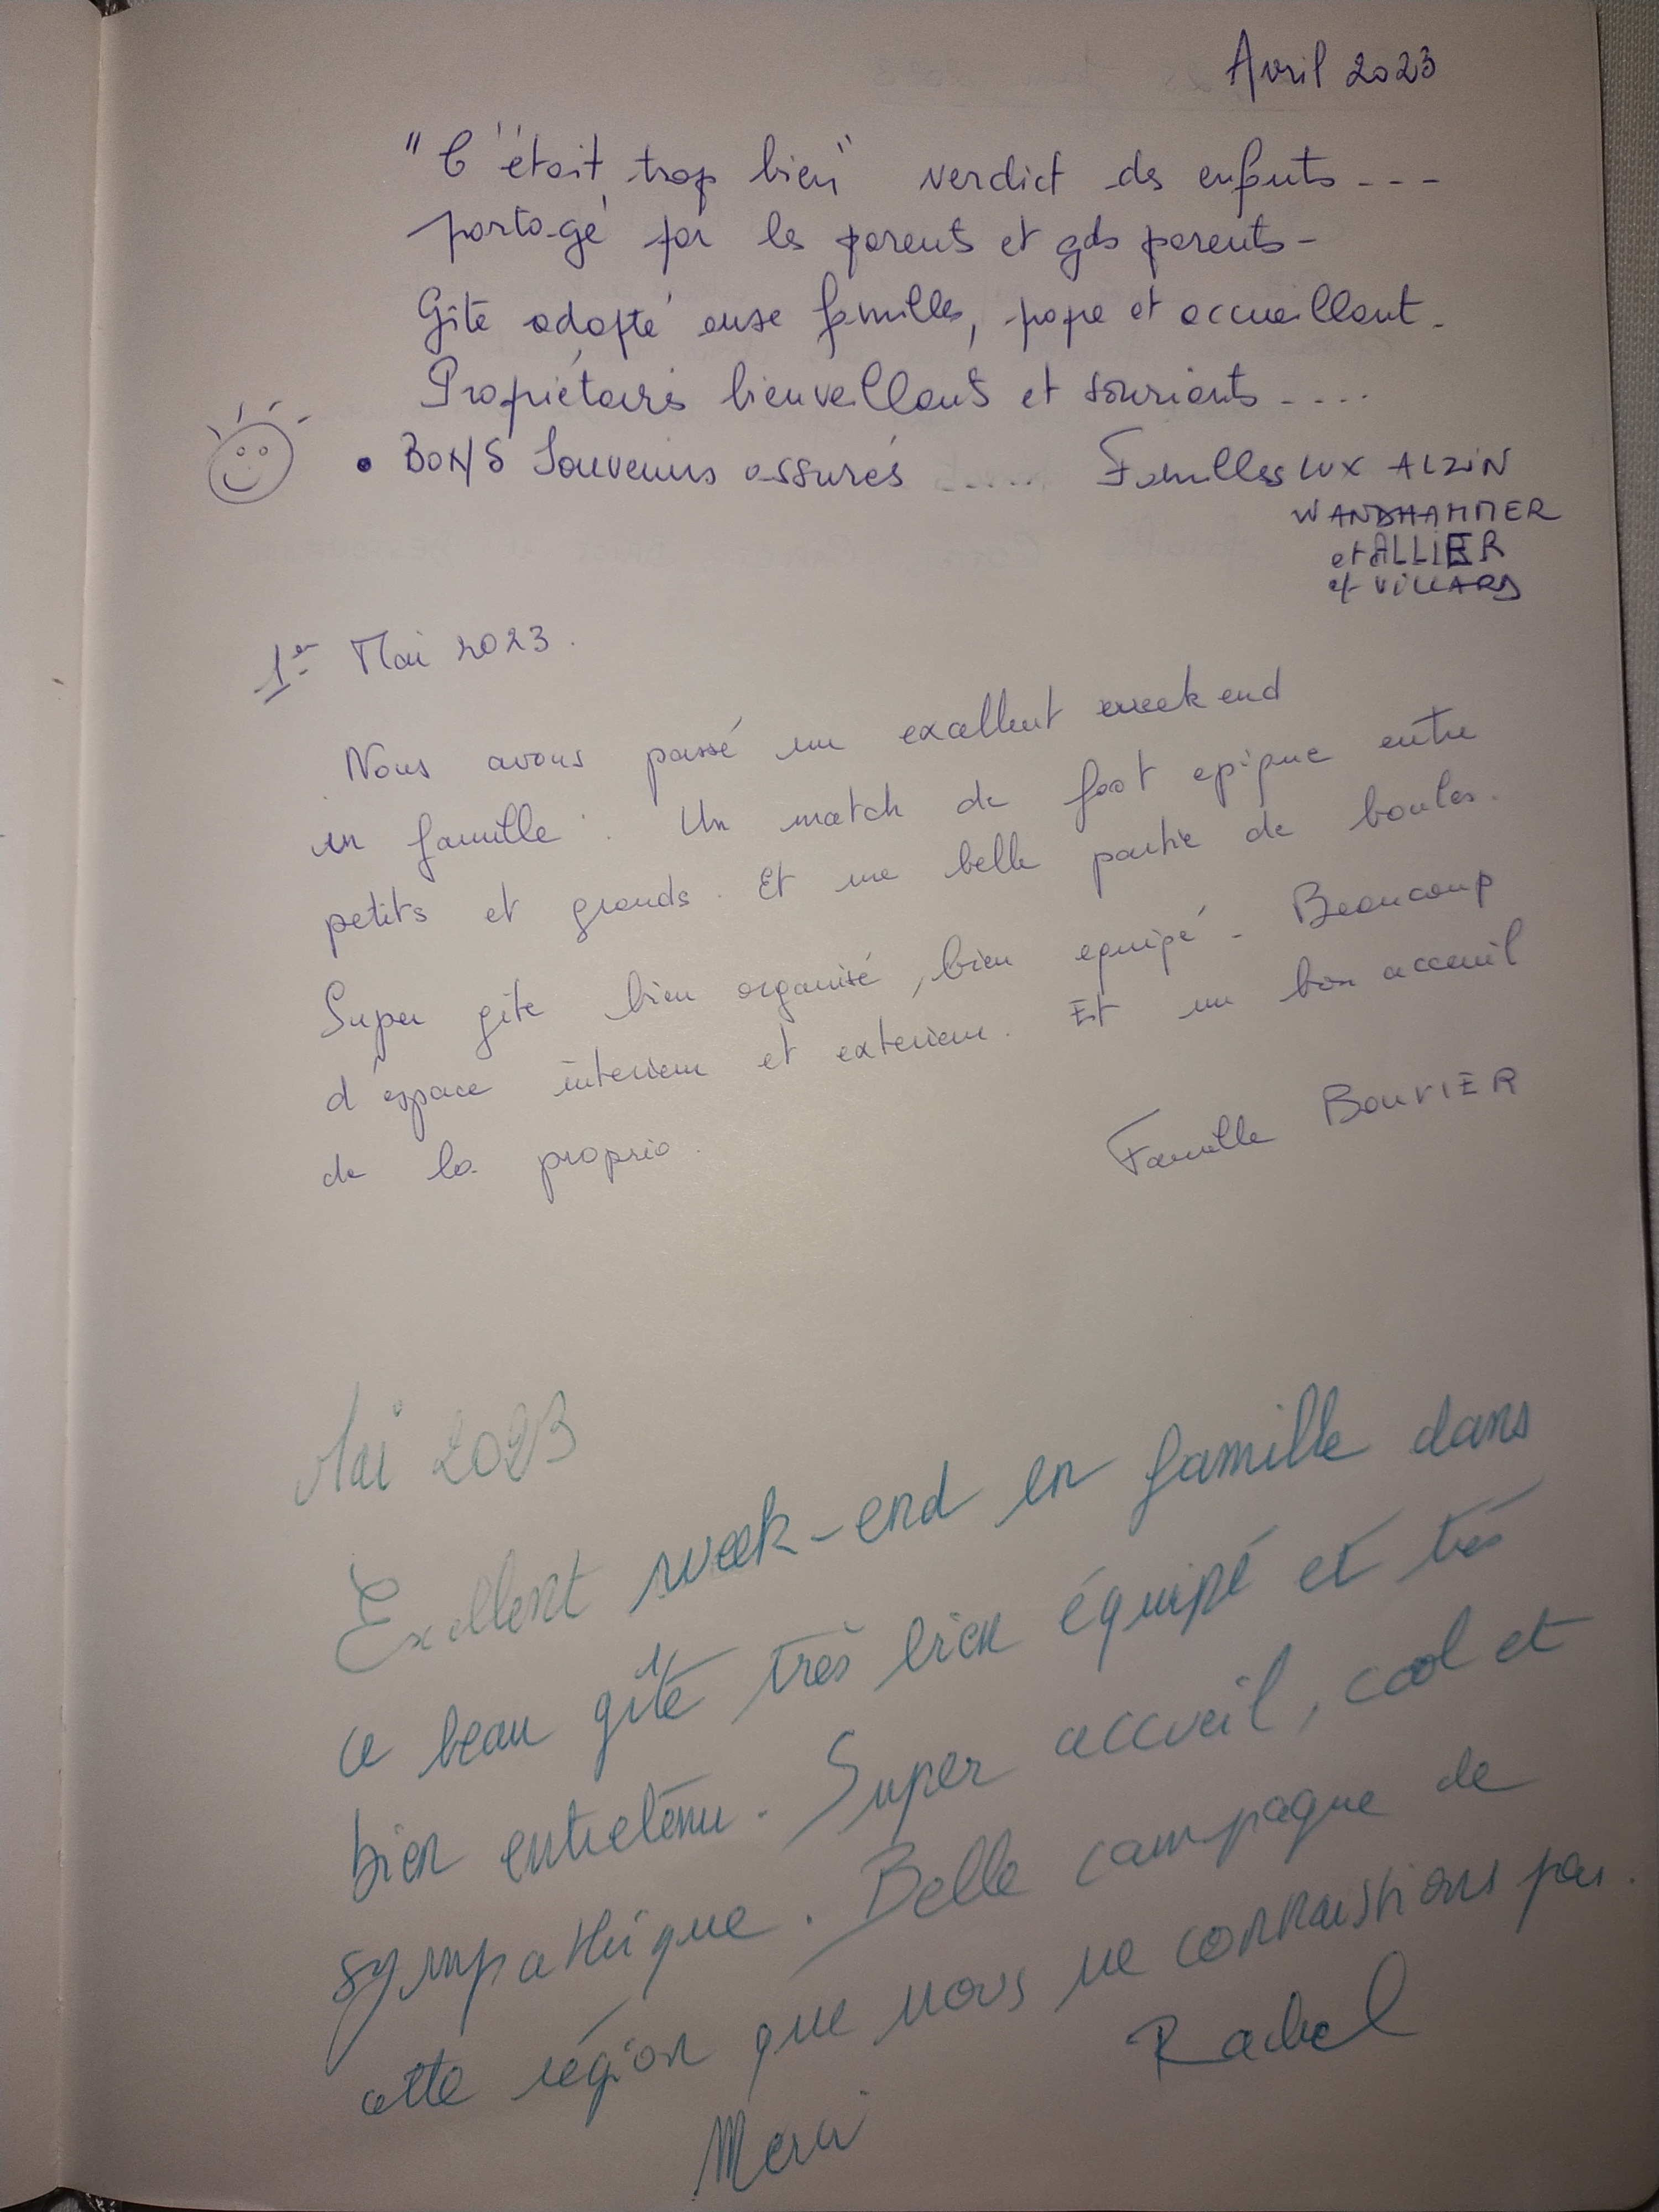 Avril 2023
"C'était trop bien" verdict des enfants ---
partagé par les parents et gds parents -
Gîte adapté aux familles, propre et accueillant.
Propriétaires bienveillants et souriants ....
• BONS Souvenirs assurés
Familles LUX ALZIN
WANDHAMMER
et ALLIER
et VILLARD
1er Mai 2023.
Nous avons passé un excellent week end
en famille. Un match de foot epique entre
petits et grands. Et une belle partie de boules.
Super gite bien organisé, bien equipé - Beaucoup
d'espace interieur et exterieur. Et un bon acceuil
de la proprio.
Famille BOUVIER
Mai 2023
Excellent week-end en famille dans
ce beau gîte très bien équipé et très
bien entretenu. Super accueil, cool et
sympathique. Belle campagne de
cette région que nous ne connaissions pas.
Rachel
Merci